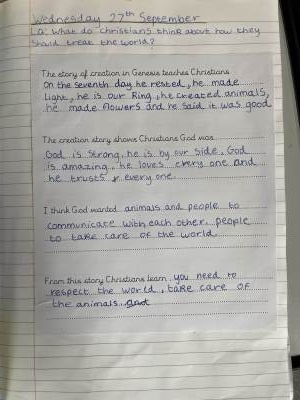 Wednesday 27th September
LO: What do Christians think about how they
should treat the world?
The story of creation in Genesis teaches Christians
On the seventh day he rested, he made
light, he is our King, he created animals,
he made flowers and he said it was good
The creation story shows Christians God was
God is strong, he is by our side, God
is amazing, he loves every one and
he trusts every one.
I think God wanted animals and people to
communicate with each other. people
to take care of the world
From this story Christians learn you need to
respect the world, take care of
the animals and